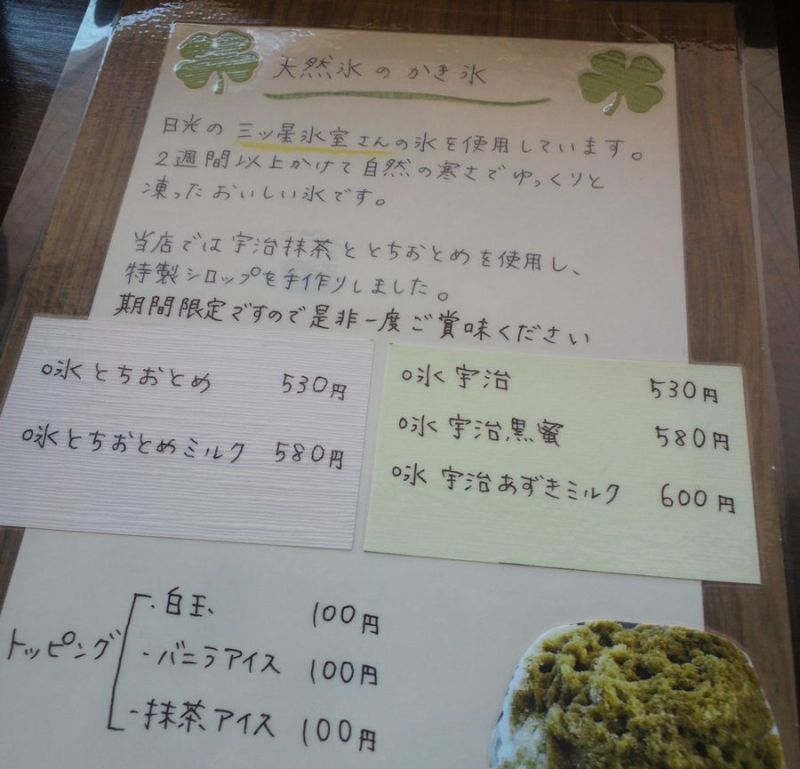 天然氷のかき氷
日光の三ツ星氷室さんの氷を使用しています。
2週間以上かけて自然の寒さでゆっくりと
凍ったおいしい氷です。
当店では宇治抹茶ととちおとめを使用し、
特製シロップを手作りしました。
期間限定ですので是非一度ご賞味ください
○氷とちおとめ 530円
○氷とちおとめミルク 580円
○氷 宇治 530円
○氷 宇治黒蜜 580円
○氷 宇治あずきミルク 600円
トッピング
・白玉 100円
・バニラアイス 100円
・抹茶アイス 100円